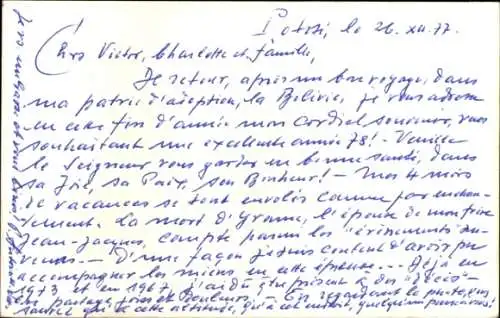 Potosi, le 26. XII. 77.
Chrs Victor, Charlotte et famille,
De retour, après un bon voyage, dans
ma patrie d'adoption, la Bolivie, je vous adresse
en cette fin d'année mon cordial souvenir, vous
souhaitant une excellente année 78! - Veuille
le Seigneur vous garder en bonne santé, dans
sa Joie, sa Paix, son Bonheur! - Mes 4 mois
de vacances se sont envolés comme par enchan-
tement. La mort d'Yvonne, l'épouse de mon frère
Jean-Jacques, compte parmi les "événements su-
- D'une façon je suis content d'avoir pu
accompagner les miens en cette épreuve... Déjà en
1973 et en 1967, j'ai dû être présent à des "décès"
partage joies et douleurs. - En regardant le
qui de cette
Je vous embrasse et vous